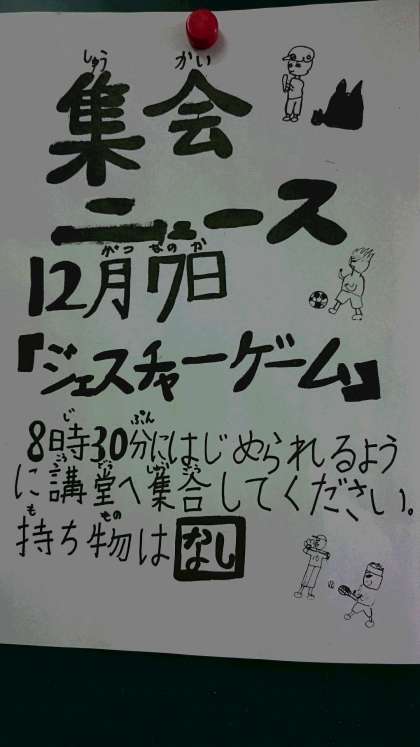 しゅう かい
集会
ニュース
がつ なのか
12月7日
『ジェスチャーゲーム』
じ ぷん
8時30分にはじめられるよう
こう どう しゅう ごう
に講堂へ集合してください。
も もの
持ち物はなし